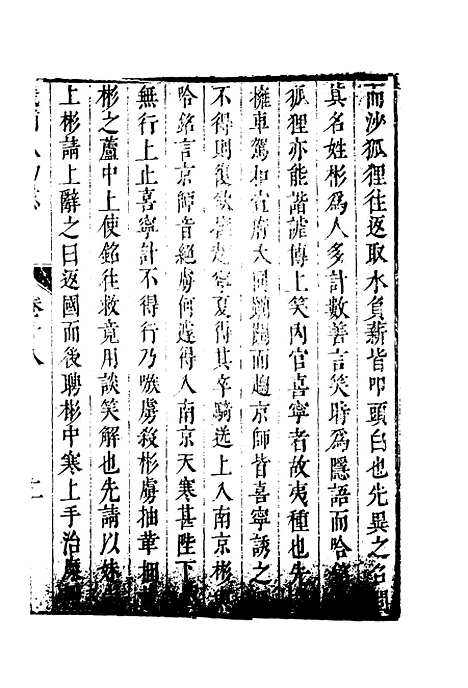 而沙狐狸往返取水負薪皆叩頭白也先異之名
其名姓彬爲人多計數善言笑時爲隱語而哈
狐狸亦能諧謔博上笑内官喜寧者故夷種也先
擁車駕和宣府大同闌關而趨京師皆喜寧誘之
不得則復欲寧夏得其卒騎送上入南京彬
哈銘言京師音絕虜何遽得入南京天寒甚陛下
無行上止喜寧計不得行乃嗾虜殺彬虜抽葦
彬之蘆中上使銘往救竟用談笑解也先請以妹
上彬請上辭之曰返國而後聘彬中寒上手治糜
卷十八